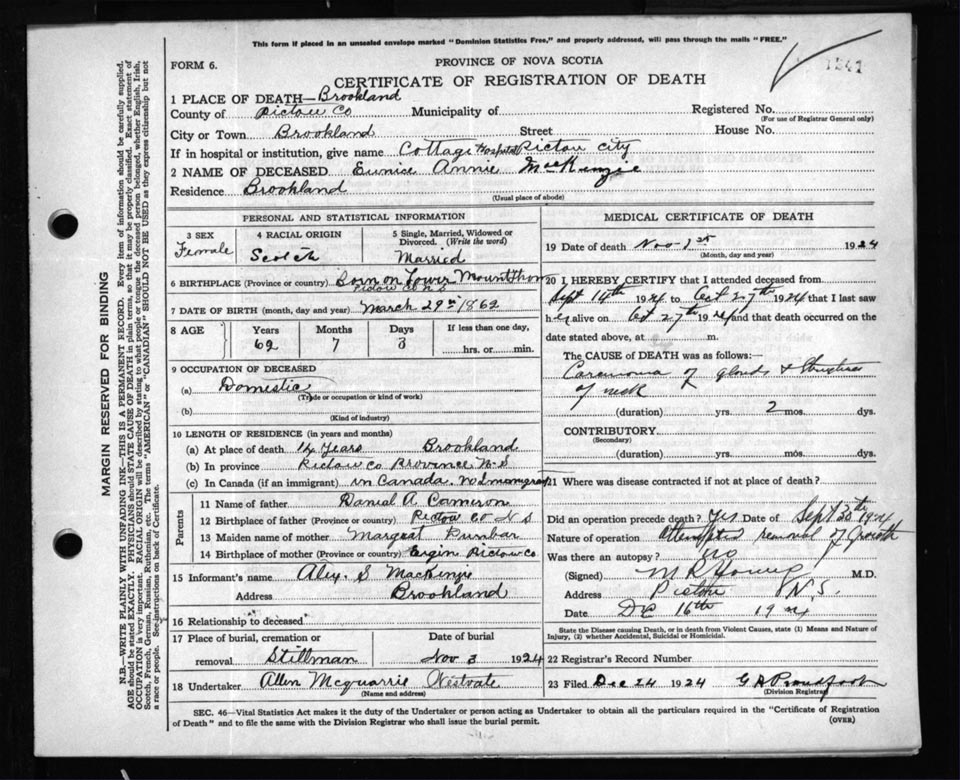 This form if placed in an unsealed envelope marked "Dominion Statistics Free," and properly addressed, will pass through the mails "FREE."
1541
FORM 6.
PROVINCE OF NOVA SCOTIA
CERTIFICATE OF REGISTRATION OF DEATH
1 PLACE OF DEATH—Brookland
County of Pictou Co Municipality of Registered No.
(For use of Registrar General only)
City or Town Brookland Street House No.
If in hospital or institution, give name Cottage Hospital Pictou city
2 NAME OF DECEASED Eunice Annie MacKenzie
Residence Brookland
(Usual place of abode)
PERSONAL AND STATISTICAL INFORMATION
3 SEX
Female
4 RACIAL ORIGIN
Scotch
5 Single, Married, Widowed or Divorced. (Write the word)
Married
6 BIRTHPLACE (Province or country) Born on Lower Mount Thom
Pictou Co N S
7 DATE OF BIRTH (month, day and year) March 29th 1862
8 AGE Years Months Days If less than one day,
62 7 3 hrs. or min.
9 OCCUPATION OF DECEASED
(a) Domestic
(Trade or occupation or kind of work)
(b)
(Kind of industry)
10 LENGTH OF RESIDENCE (in years and months)
(a) At place of death Years Brookland
(b) In province Pictou Co Province N-S
(c) In Canada (if an immigrant) in Canada. No Immigrant
Parents
11 Name of father Danial A. Cameron
12 Birthplace of father (Province or country) Pictou Co N S
13 Maiden name of mother Margrat Dunbar
14 Birthplace of mother (Province or country) Pictou Co.
15 Informant's name Alex. S MacKenzie
Address Brookland
16 Relationship to deceased
17 Place of burial, cremation or removal Stillman
Date of burial Nov 3 1924
18 Undertaker Allen Mcquarrie Westvale
(Name and address)
MEDICAL CERTIFICATE OF DEATH
19 Date of death Nov-1st 1924
(Month, day and year)
20 I HEREBY CERTIFY that I attended deceased from
Sept 14th 1924 to Oct 27th 1924 that I last saw
her alive on Oct 27th 1924 and that death occurred on the
date stated above, at m.
The CAUSE of DEATH was as follows:
Carcinoma of glands &
of neck
(duration) yrs. 2 mos. dys.
CONTRIBUTORY.
(Secondary)
(duration) yrs. mos. dys.
21 Where was disease contracted if not at place of death?
Did an operation precede death? Yes Date of Sept 30th 1924
Nature of operation Attempted removal of Growth
Was there an autopsy? no
(Signed) M R Young M.D.
Address Pictou N.S.
Date Dec 16th 1924
State the Disease causing Death, or in death from Violent Causes, state (1) Means and Nature of Injury, (2) whether Accidental, Suicidal or Homicidal.
22 Registrar's Record Number
23 Filed Dec 24 1924
(Division Registrar)
SEC. 46—Vital Statistics Act makes it the duty of the Undertaker or person acting as Undertaker to obtain all the particulars required in the "Certificate of Registration
of Death" and to file the same with the Division Registrar who shall issue the burial permit.
(OVER)
MARGIN RESERVED FOR BINDING
N.B.—WRITE PLAINLY WITH UNFADING INK—THIS IS A PERMANENT RECORD. Every item of information should be carefully supplied.
AGE should be stated EXACTLY. PHYSICIANS should STATE CAUSE OF DEATH in plain terms, so that it may be properly classified. Exact statement of
OCCUPATION is very important. RACIAL ORIGIN will be described by stating to what people or tongue the deceased person belonged, whether English, Irish,
Scotch, French, German, Russian, Ruthenian, etc. The terms "AMERICAN" or "CANADIAN" SHOULD NOT BE USED as they express citizenship but not
a race or people. See instructions on back of Certificate.